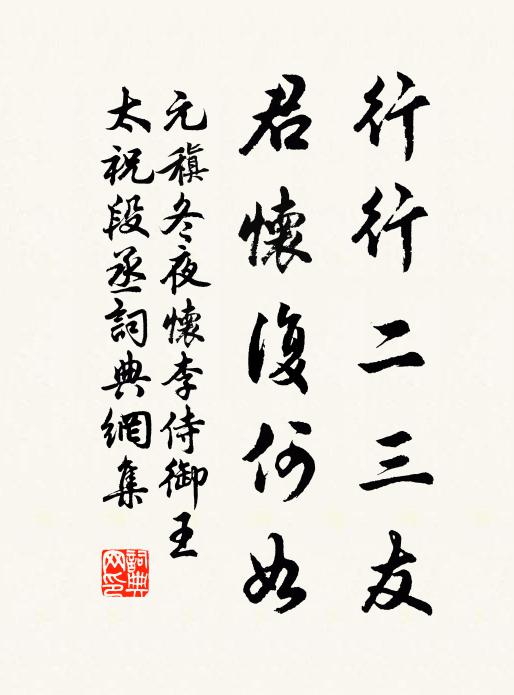 行行二三友
君懷復何如
元稹冬夜懷李侍御王
太祝段丞詞典網集
詞典
网印